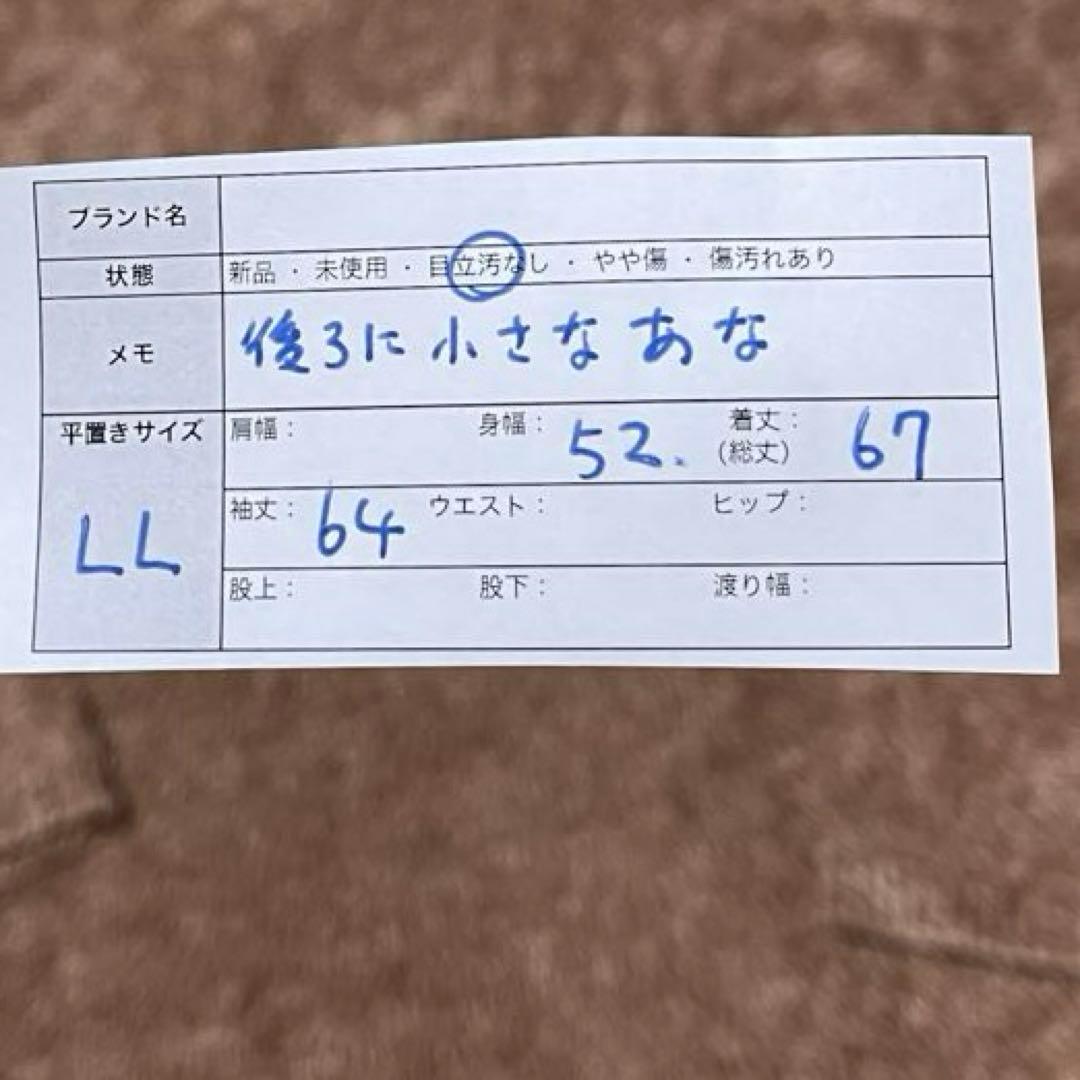 ブランド名
状態 新品 ・ 未使用 ・ 目立汚なし ・ やや傷 ・ 傷汚れあり
メモ 後ろに小さなあな
平置きサイズ 肩幅： 身幅： 52. 着丈： (総丈) 67
LL 袖丈： 64 ウエスト： ヒップ：
股上： 股下： 渡り幅：